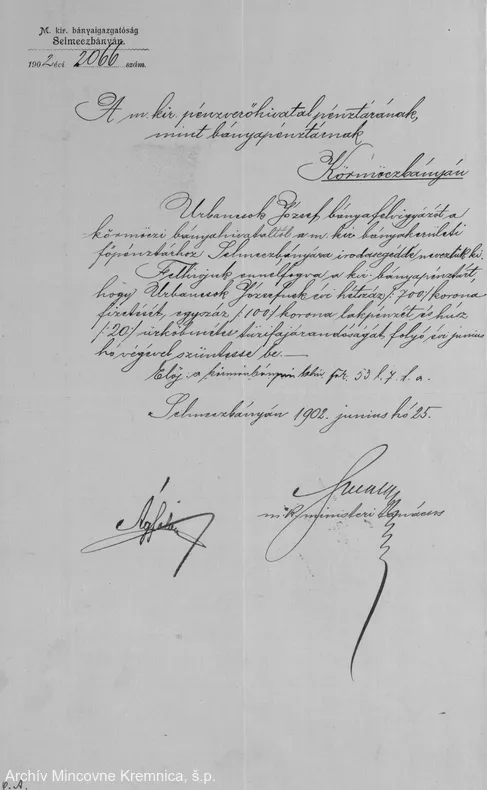 M. kir. bányaigazgatóság
Selmeczbányán.
1902 évi 2066 szám.
A m. kir. pénzverőhivatal pénztárának,
mint bányapénztárnak
Körmöczbányán
Urbancsok József bányafelvigyázót a
körmöczi bányahivataltól a m. kir. bányakerületi
főpénztárhoz Selmeczbányára irodasegéddé neveztük ki.
Felhívjuk ennélfogva a kir. bányapénztárt,
hogy Urbancsok Józsefnek évi hétszáz /:700:/ korona
fizetését, egyszáz /:100:/ korona lakpénzét és húsz
/:20:/ ürköbméter tűzifajárandóságát folyó évi június
hó végével szüntesse be.—
Előj. a 53 l. 7. t. a.
Selmeczbányán 1902. június hó 25.
m. k. ministeri tanácsos
Archív Mincovne Kremnica, š.p.